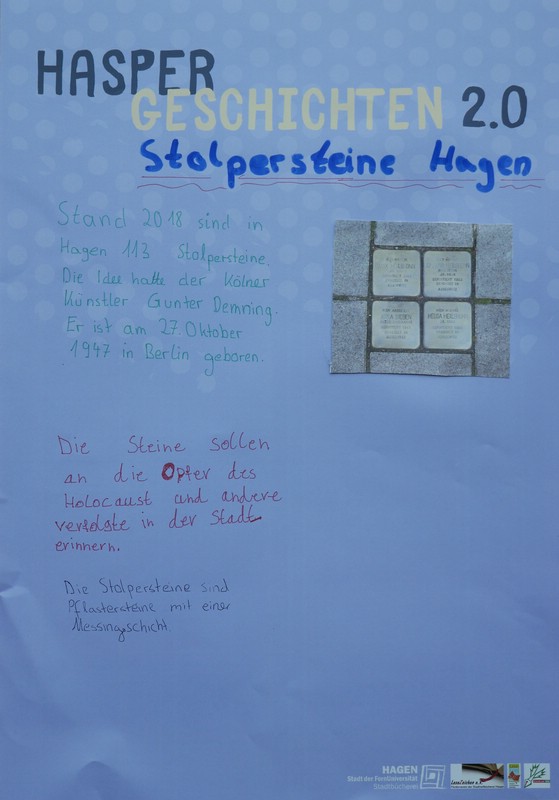 HASPER
GESCHICHTEN 2.0
Stolpersteine Hagen
Stand 2018 sind in
Hagen 113 Stolpersteine.
Die Idee hatte der Kölner
Künstler Gunter Demning.
Er ist am 27. Oktober
1947 in Berlin geboren.
Die Steine sollen
an die Opfer des
Holocaust und andere
verfolgte in der Stadt
erinnern.
Die Stolpersteine sind
Pflastersteine mit einer
Messingschicht
HAGEN
Stadt der FernUniversität
Stadtbücherei
LeseZeichen e.V.